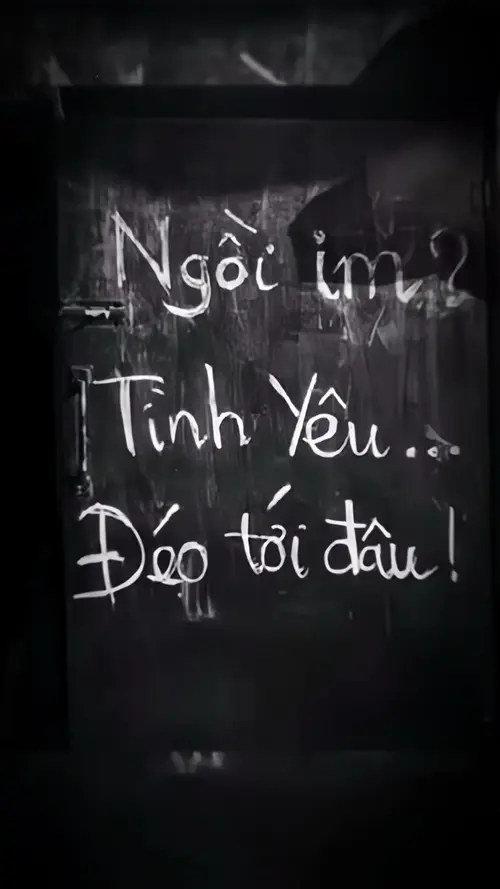 Ngồi im?
Tinh Yêu...
Đéo tới đâu!